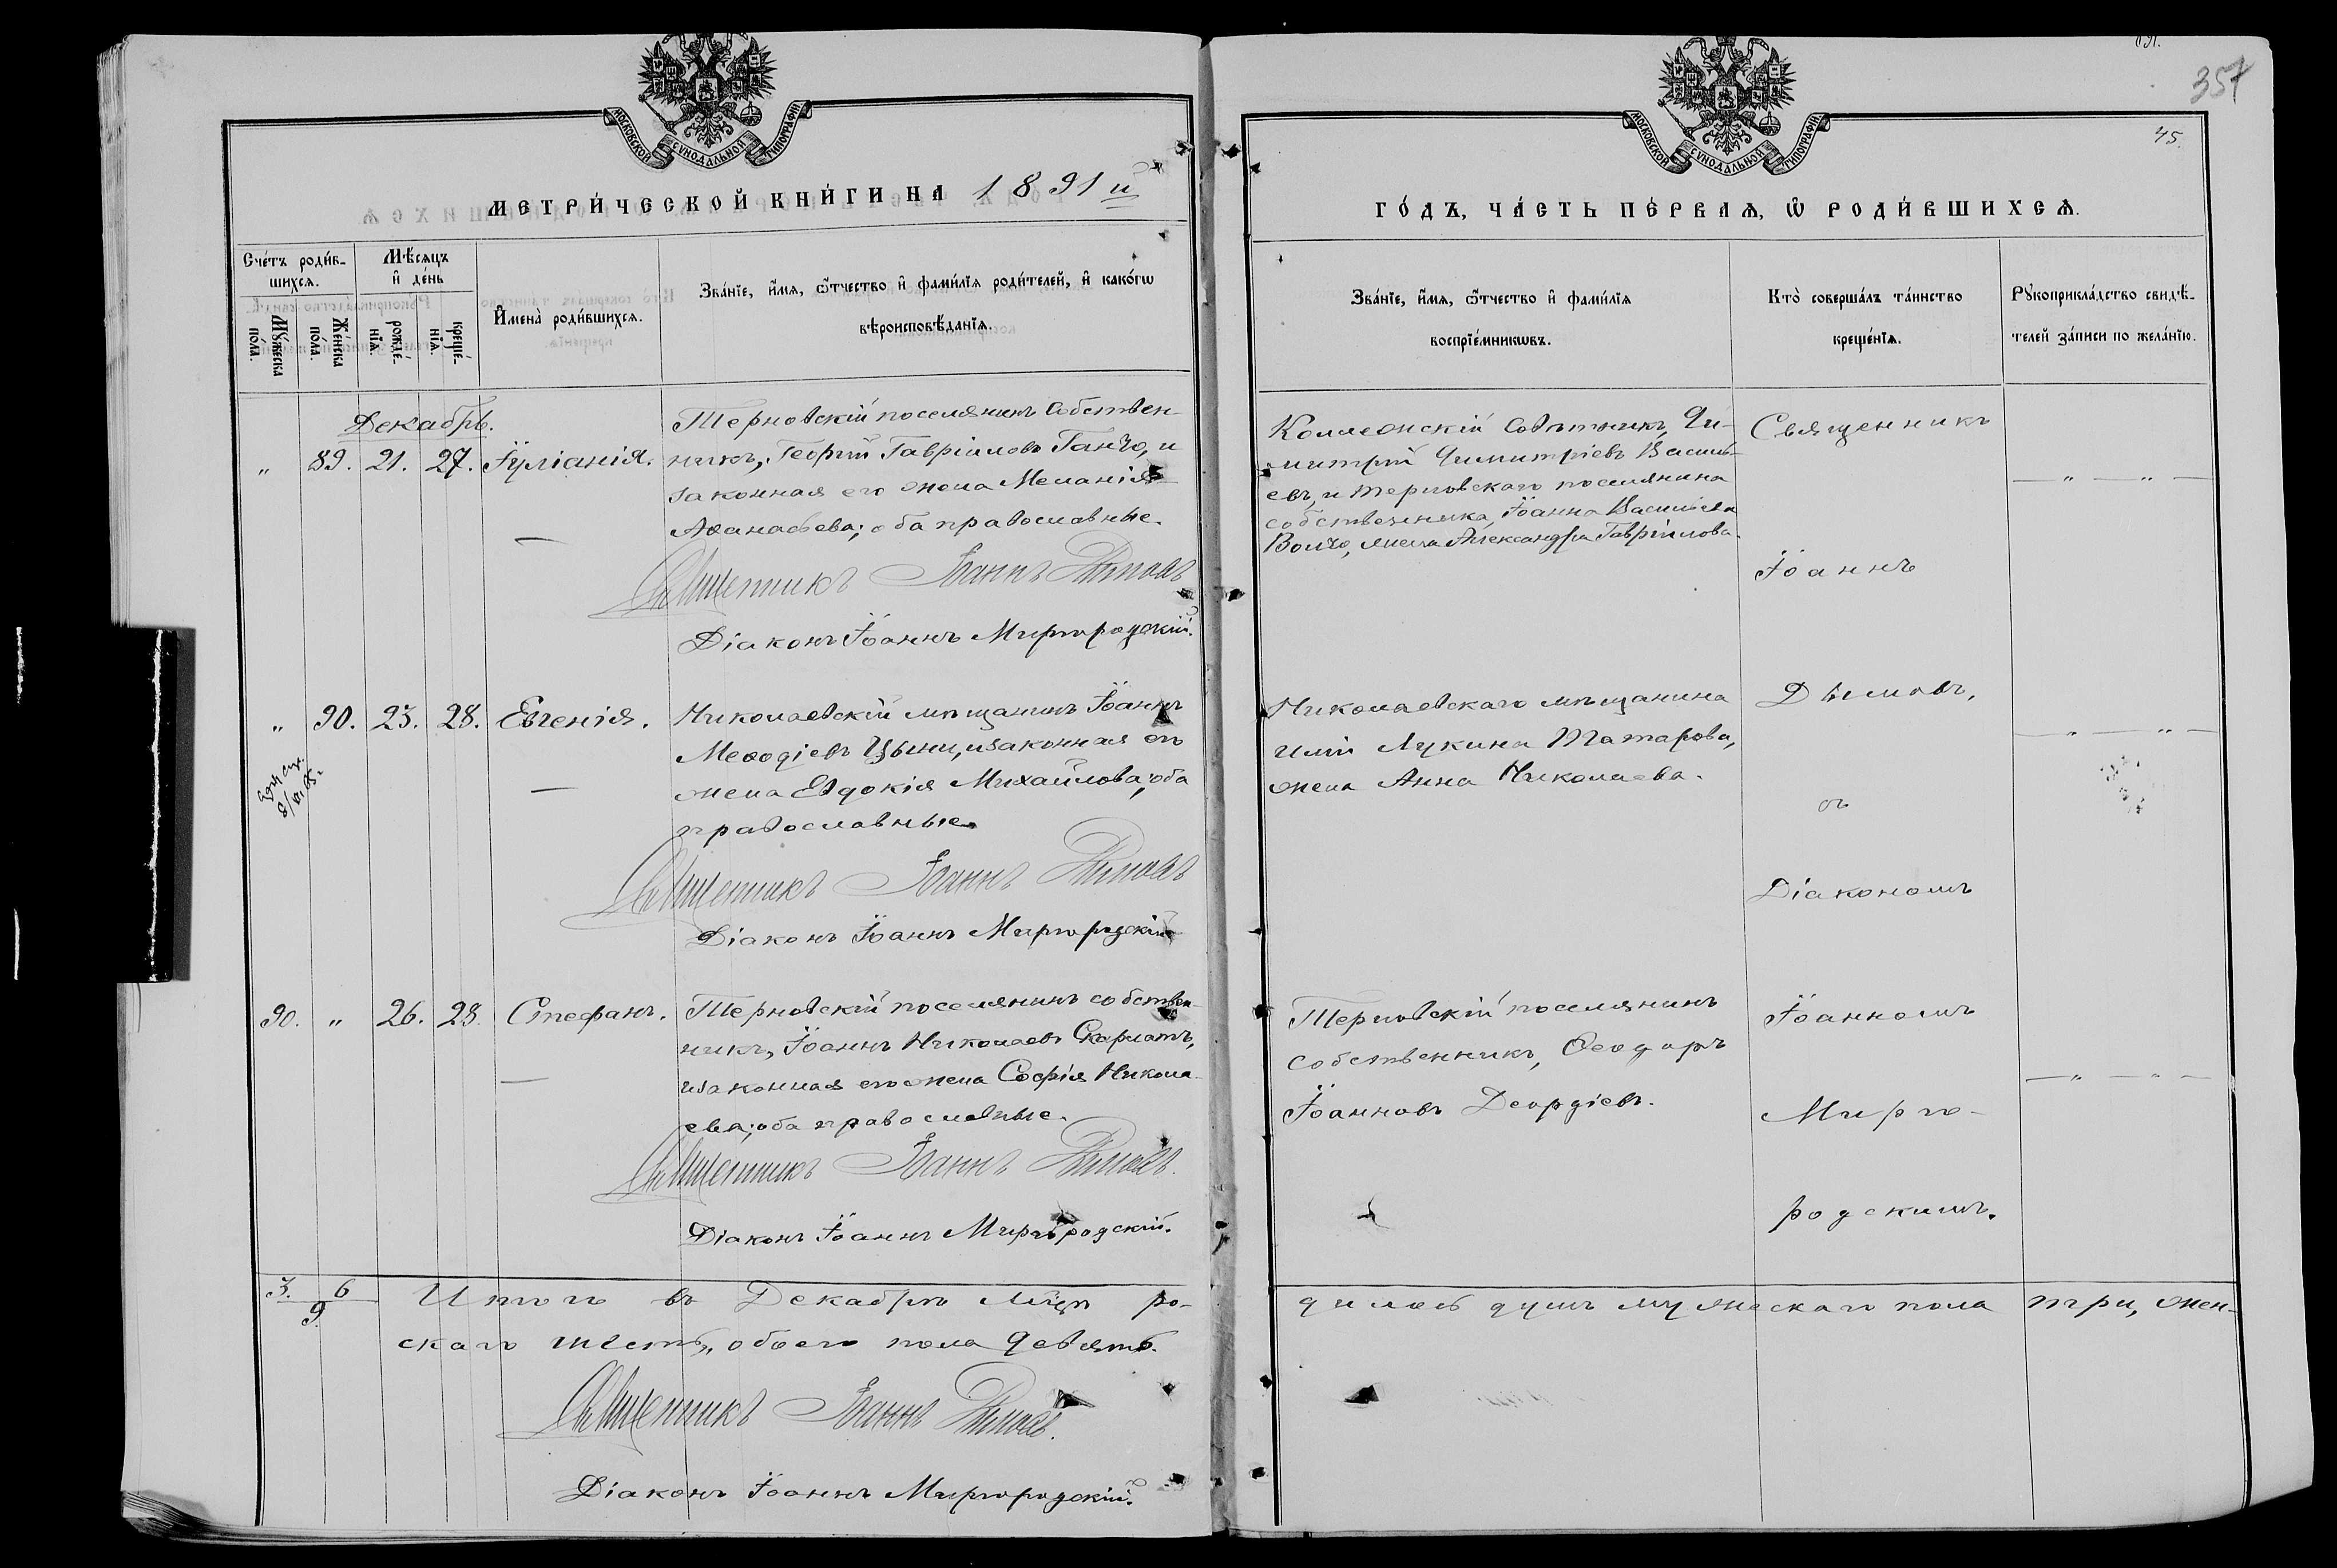 МОСКОВСКОЙ СѴНОДАЛЬНОЙ ТИПОГРАФІИ
МЕТРИ́ЧЕСКОЙ КНИ́ГИ НА 1891й
Сче́тъ роди́в-
шихсѧ.
Мꙋ́жеска
по́ла.
Же́нска
по́ла.
Мѣ́сѧцъ
и҆ де́нь
рожде́-
нїѧ.
креще́-
нїѧ.
И҆мена̀ роди́вшихсѧ.
Зва́нїе, и҆́мѧ, ѻ҆́тчество и҆ фамѝлїѧ роди́телей, и҆ како́гѡ
вѣроисповѣ́данїѧ.
Декабрь.
" 89. 21. 27. Іуліанія.
Терновскій поселянинъ собствен-
никъ, Георгій Гавріиловъ Ганчо, и
законная его жена Меланія
Аѳанасьева; оба православные.
Священникъ Іоаннъ Дымовъ
Діаконъ Іоаннъ Миргородскій.
" 90. 23. 28. Евгенія.
Николаевскій мѣщанинъ Іоаннъ
Меѳодіевъ Цыни, и законная его
жена Евдокія Михайлова; оба
православные.
Священникъ Іоаннъ Дымовъ
Діаконъ Іоаннъ Миргородскій
90. " 26. 28. Стефанъ.
Терновскій поселянинъ собствен-
никъ, Іоаннъ Николаевъ Скарлатъ,
и законная его жена Софія Никола-
ева; оба православные.
Священникъ Іоаннъ Дымовъ.
Діаконъ Іоаннъ Миргородскій.
3. 6
9.
Итого въ Декабрѣ мцѣ ро-
скаго шесть, обоего пола девять.
Священникъ Іоаннъ Дымовъ.
Діаконъ Іоаннъ Миргородскій.
357
45.
МОСКОВСКОЙ СѴНОДАЛЬНОЙ ТИПОГРАФІИ
ГО́ДЪ, ЧА́СТЬ ПЕ́РВАѦ, Ѡ҆ РОДИ́ВШИХСѦ.
Зва́нїе, и҆́мѧ, ѻ҆́тчество и҆ фами́лїѧ
воспрїе́мникѡвъ.
Кто̀ соверша́лъ та́инство
креще́нїѧ.
Рꙋкоприкла́дство свидѣ́-
телей за́писи по жела́нїю.
Коллежскій Совѣтникъ, Ди-
митрій Димитріевъ Василь-
евъ, и терновскаго поселянина
собственника, Іоанна Васильева
Волчо, жена Александра Гавріилова.
Священникъ
Іоаннъ
Николаевскаго мѣщанина
Иліи Лукина Татарова,
жена Анна Николаева.
Дымовъ,
съ
Діакономъ
Терновскій поселянинъ
собственникъ, Ѳеодоръ
Іоанновъ Деордіевъ.
Іоанномъ
Мирго-
родскимъ.
дилось душъ мужескаго пола три, жен-